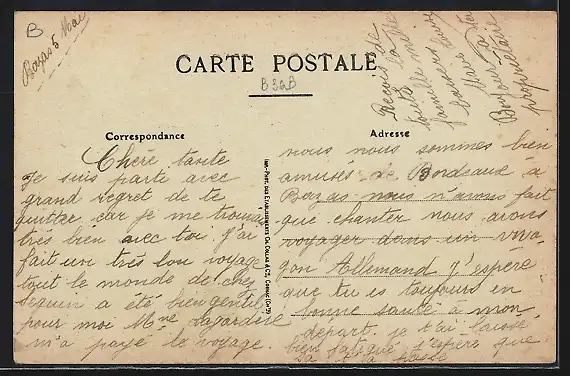 B
Bazas 5 Mai
CARTE POSTALE
B36B
Correspondance
Adresse
Chère tante
Je suis parte avec
grand regret de te
quitter car je me trouvais
très bien avec toi. J'ai
fait un très bon voyage
tout le monde de chez
Seguin a été bien gentil
pour moi Mme Lagardere
m'a payé le voyage.
nous nous sommes bien
amusés de Bordeaux à
Bazas nous n'avons fait
que chanter nous avons
voyager dans un wa
gon Allemand J'espere
que tu es toujours en
bonne santé à mon
départ je t'ai laissé
bien fatigué j'espère que
sa
Reçois de
toute la
famille mi
baisers
Bonjour à
propriétaire
Imp.-Phot. des Etablissements Ch. Collas & Cie, Cognac